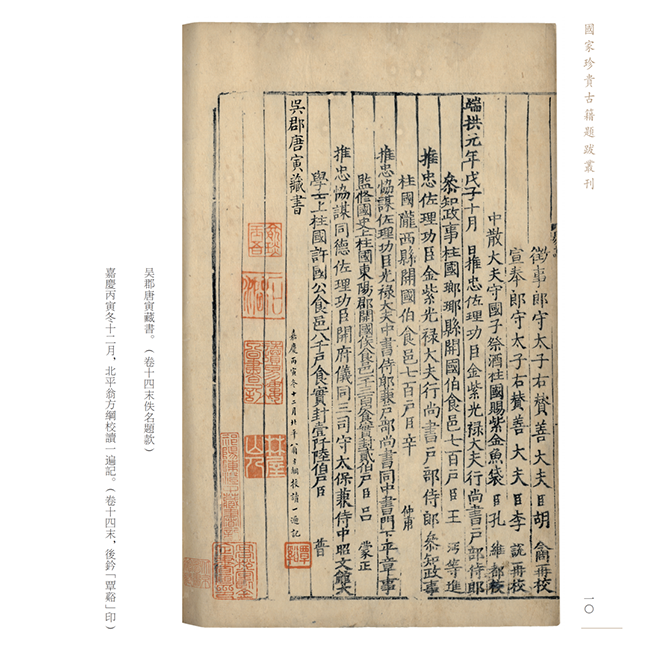 國家珍貴古籍題跋叢刊
徵事郎守太子右贊善大夫臣胡 令問再校
宣奉郎守太子右贊善大夫臣李 說再校
中散大夫守國子祭酒柱國賜紫金魚袋臣孔 維都校
端拱元年戊子十月 日推忠佐理功臣金紫光祿大夫行尚書戶部侍郎
叅知政事柱國瑯琊縣開國伯食邑七百戶臣王 沔等進
推忠佐理功臣金紫光祿大夫行尚書戶部侍郎叅知政事
柱國隴西縣開國伯食邑七百戶臣辛 仲甫
推忠協謀佐理功臣光祿大夫中書侍郎兼戶部尚書同中書門下平章事
監修國史上柱國東陽郡開國侯食邑食實封貳伯戶臣呂 蒙正
推忠協謀同德佐理功臣開府儀同三司守太保兼侍中昭文館大
學士上柱國許國公食邑八千戶食實封壹阡陸伯戶臣 普
嘉慶丙寅冬十二月北平翁方綱校讀一遍記
覃谿
吳郡唐寅藏書
吴郡唐寅藏書。（卷十四末佚名題款）
嘉慶丙寅冬十二月，北平翁方綱校讀一遍記。（卷十四末，後鈐「覃谿」印）
一〇